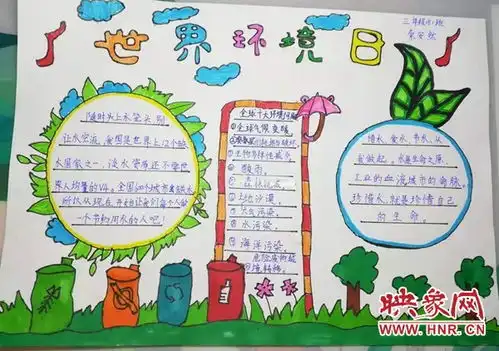 世界环境日
三年级八班
随时头上水龙头别
让水空流，我国是世界上12个缺
水国家之一，淡水资源还不是世
界人均量的1/4，全国600多城市
一个节约用水的人吧！
全球十大环境问题
①全球气候变暖，
③生物多样性减少。
④酸雨。
⑤森林
⑥土地沙漠。
⑦大气污染。
⑧水污染。
⑨海洋污染。
⑩危险废物越
境转移。
惜水、爱水、节水，从
我做起。水是生命之源、
工业的血液城市的命脉。
珍惜水，就是珍惜自己
的生命。
映象网
WWW.HNR.CN